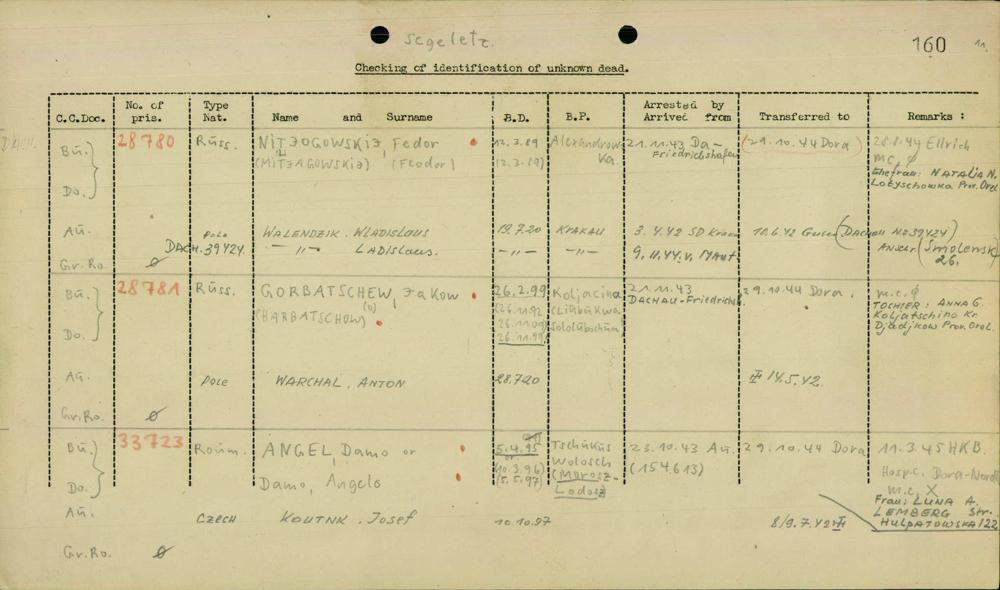 segeletz.
160
Checking of identification of unknown dead.
C.C.Doc. No. of pris. Type Nat. Name and Surname B.D. B.P. Arrested by Arrived from Transferred to Remarks :
Bu. 28780 Russ. Fedor 12.3.89 Alexandrow- 21.11.43 Da- (29.10.44 Dora) 28.8.44 Ellrich
(MITJAGOWSKIJ) (Feodor) (2.3.89) ka. Friedrichshafen m.c. ϕ
Ehefrau: NATALIA N.
Do. Prov. Orel
Au. Pole WALENDZIK. WLADISLAUS 19.7.20 KRAKAU 3.4.42 SD Krakau 10.6.42 (DACHAU No 39424)
DACH. 39424. — „ — LADISLAUS. — „ — — „ — 9.11.44. v. MAUT (Smolensk
Gr.Ro. ϕ 26.
Bu. 28781 Russ. GORBATSCHEW, Jakow 26.2.99 Koljacina 21.11.43 29.10.44 Dora. m.c. ϕ
(HARBATSCHOW) (o) (26.11.92 DACHAU-Friedrichsh. TOCHTER: ANNA G.
26.11.09) Koljatschino Kr.
Do. 26.11.99 Djadjkow Prov. Orel.
Au. Pole WARCHAL. ANTON 28.7.20 ‡ 14.5.42.
Gr.Ro. ϕ
Bu. 33723 Roum. ANGEL, Damo or 5.4.95 Tschukus 23.10.43 Au. 29.10.44 Dora 11.3.45 HKB.
or Wolosch (154.613) Hosp.c. Dora-Nordh.
(10.3.96) (Morosz- m.c. X
Do. Damo, Angelo (5.5.97) Lodosz) Frau: LUNA A.
Au. LEMBERG Str.
CZECH KOUTNK. Josef 10.10.97 8/9.7.42 HULPATOWSKA 122
Gr.Ro. ϕ